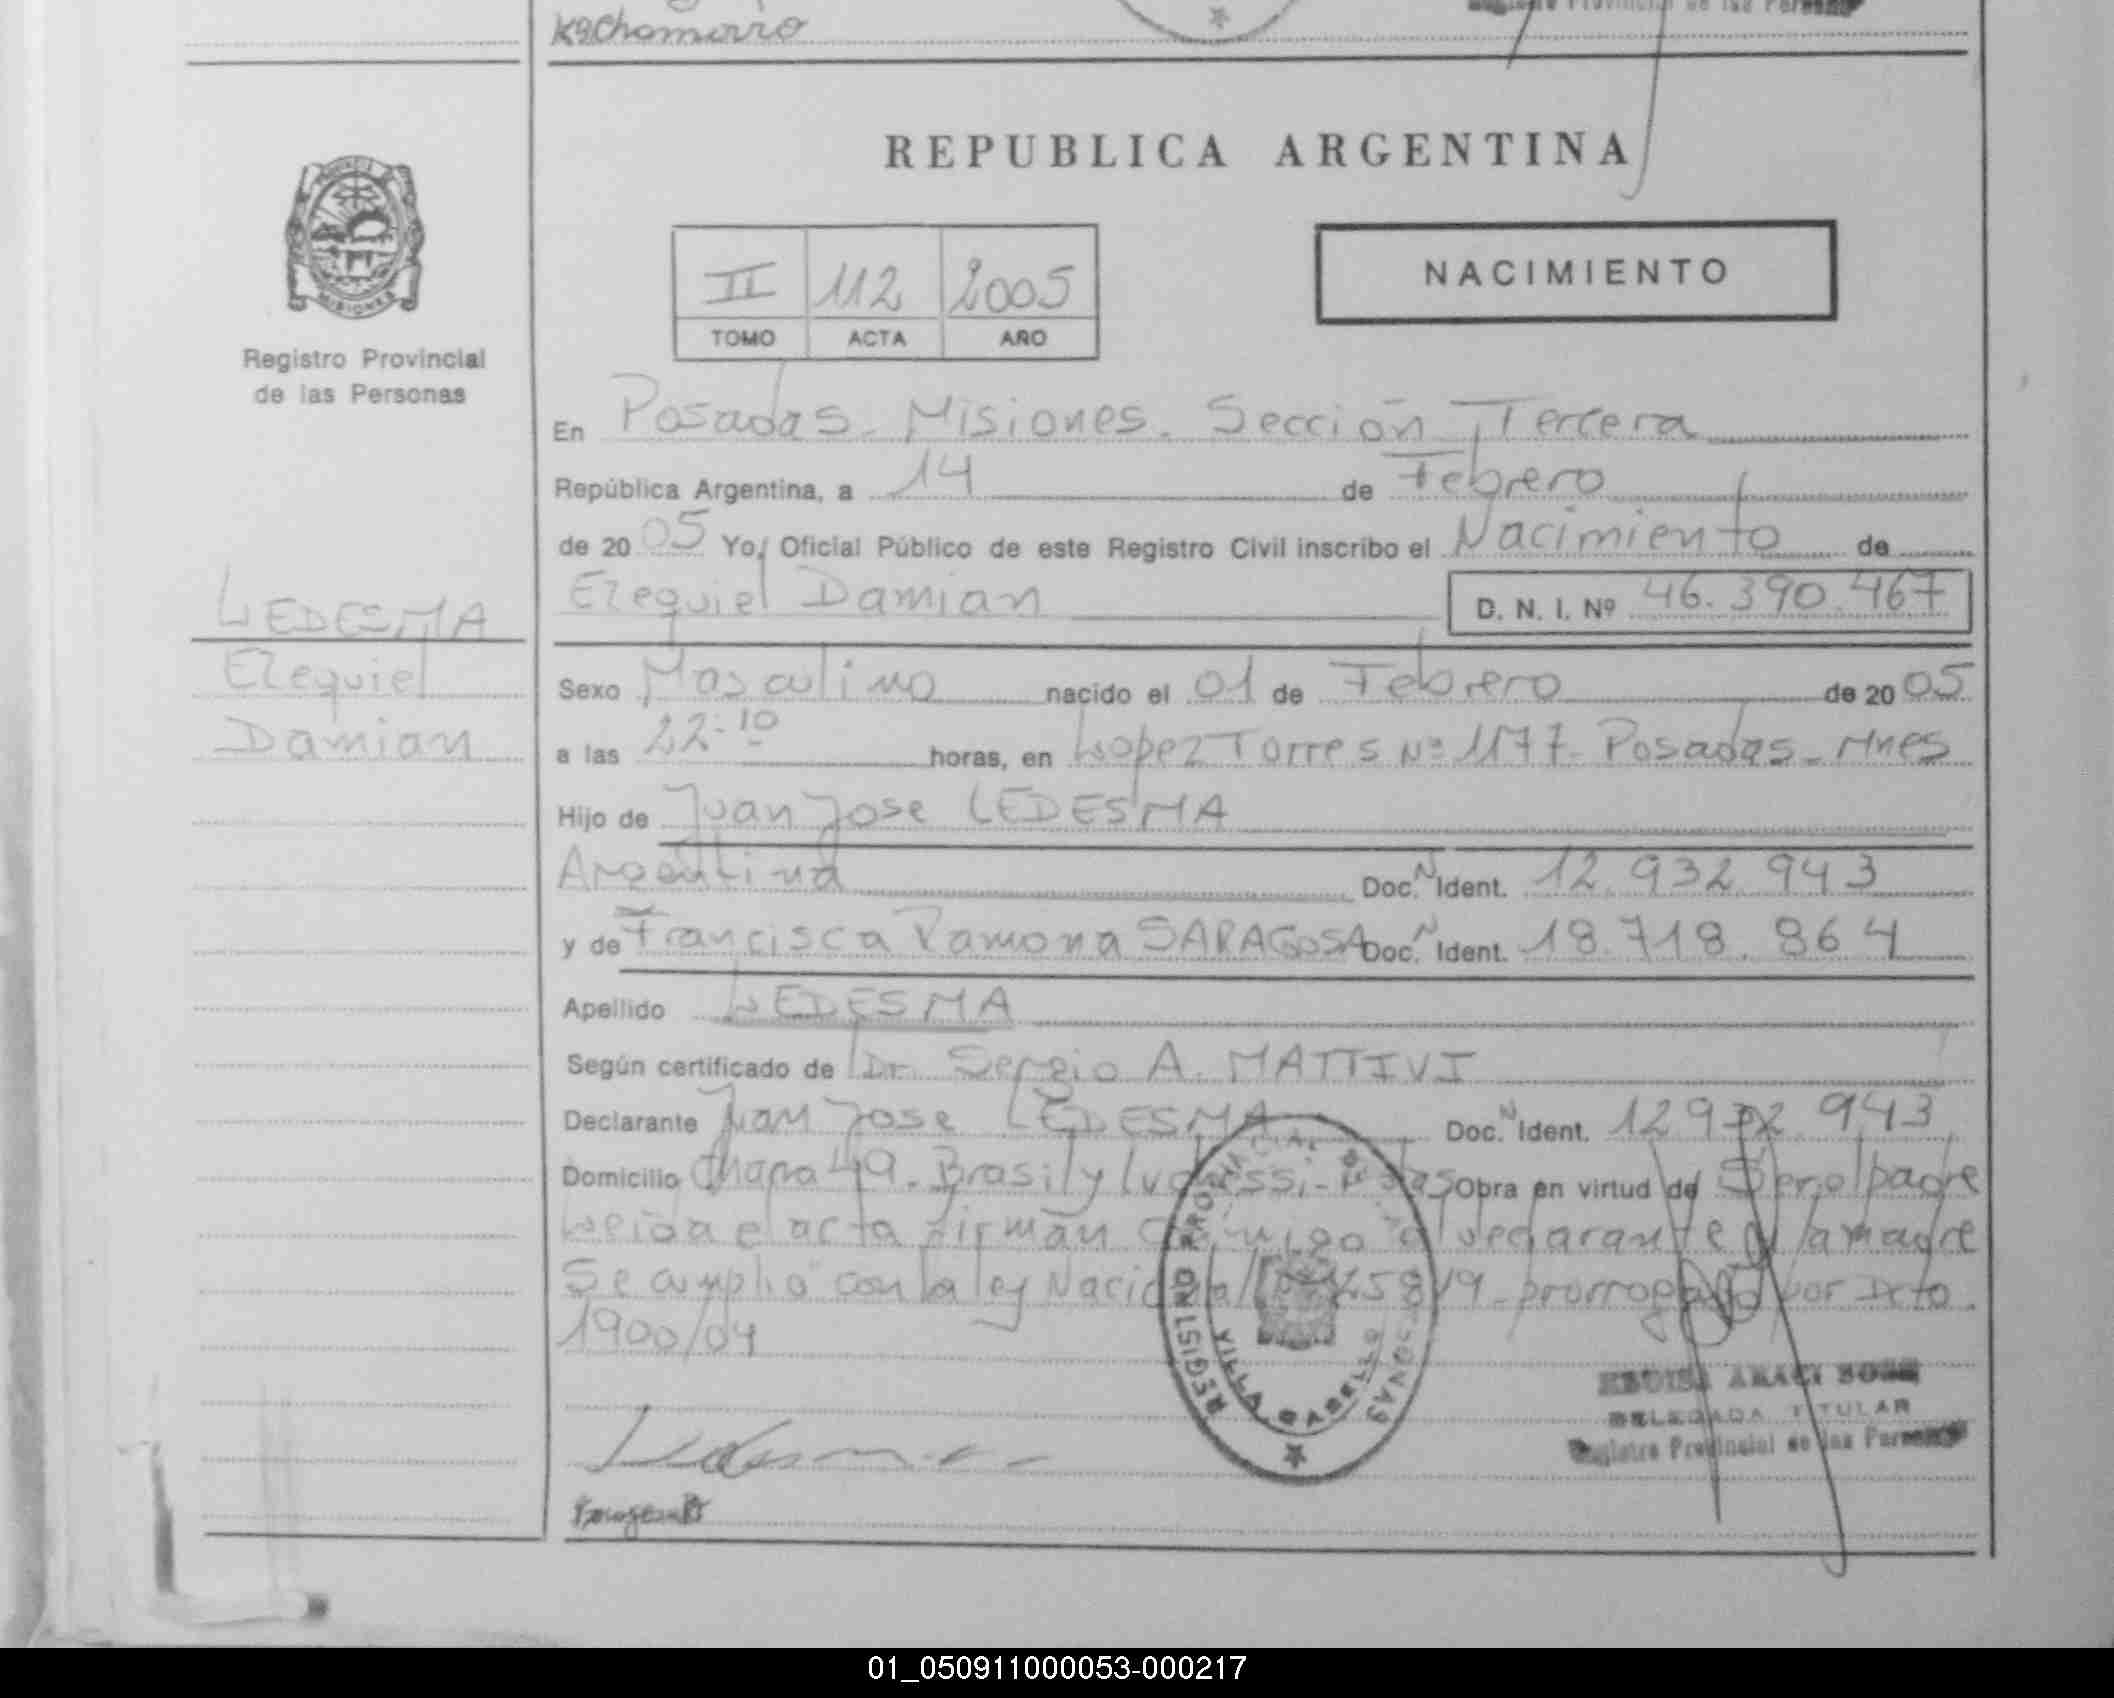 KgChamorro
REPUBLICA ARGENTINA
MISIONES
Registro Provincial
de las Personas
II 112 2005
TOMO ACTA AÑO
NACIMIENTO
En Posadas - Misiones. Sección Tercera
República Argentina, a 14 de Febrero
de 2005 Yo, Oficial Público de este Registro Civil inscribo el Nacimiento de
Ezequiel Damian D. N. I. Nº 46.390.467
LEDESMA
Ezequiel
Damian
Sexo Masculino nacido el 01 de Febrero de 2005
a las 22-10 horas, en Lopez Torres Nº 1177- Posadas - Mnes
Hijo de Juan Jose LEDESMA
Argentina Doc. N Ident. 12.932.943
y de Francisca Ramona SARAGOSA Doc. N Ident. 18.718.864
Apellido LEDESMA
Según certificado de Dr. Sergio A. MATTIVI
Declarante Juan Jose LEDESMA Doc. N Ident. 12932.943
Domicilio Chacra 49 - Brasil y Obra en virtud de Ser el padre
Leida el acta firman conmigo el declarante y la madre
Se cumplio con la ley Nacional 25819 - prorrogado por Dcto.
1900/04
REGISTRO PROVINCIAL DE LAS PERSONAS
VILLA CABELLO
DELEGADA TITULAR
Registro Provincial de las Personas
Ledesma
01_050911000053-000217